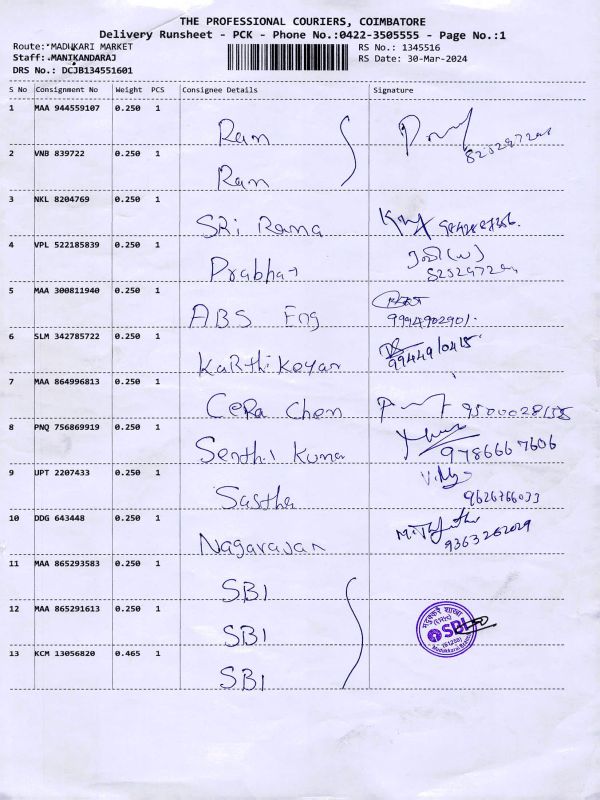 THE PROFESSIONAL COURIERS, COIMBATORE
Delivery Runsheet - PCK - Phone No.:0422-3505555 - Page No.:1
Route: MADUKARI MARKET
RS No.: 1345516
Staff: MANIKANDARAJ
RS Date: 30-Mar-2024
DRS No.: DCJB134551601
S No Consignment No Weight PCS Consignee Details Signature
1 MAA 944559107 0.250 1
Ram
2 VNB 839722 0.250 1
Ram
3 NKL 8204769 0.250 1
SRi Rama
4 VPL 522185839 0.250 1
Prabha
5 MAA 300811940 0.250 1
ABS Eng
9994902901.
6 SLM 342785722 0.250 1
KaRthikeyan
9944910415
7 MAA 864996813 0.250 1
CeRa Chem
8 PNQ 756869919 0.250 1
Senthil Kumar 9786667606
9 UPT 2207433 0.250 1
Sastha 9626766033
10 DDG 643448 0.250 1
Nagarajan 9363262029
11 MAA 865293583 0.250 1
SBI
12 MAA 865291613 0.250 1
SBI
SBI
13 KCM 13056820 0.465 1
SBI